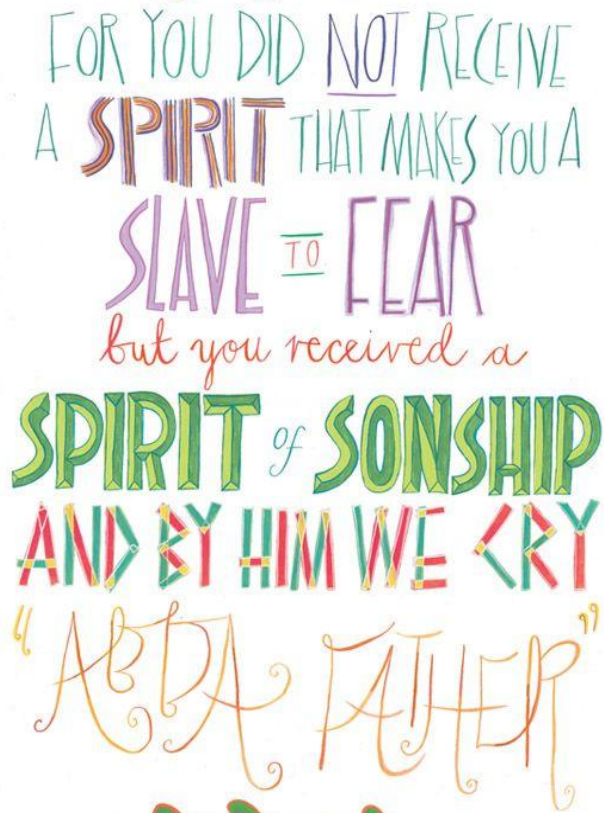 FOR YOU DID NOT RECEIVE
A SPIRIT THAT MAKES YOU A
SLAVE TO FEAR
but you received a
SPIRIT of SONSHIP
AND BY HIM WE CRY
"ABBA FATHER"